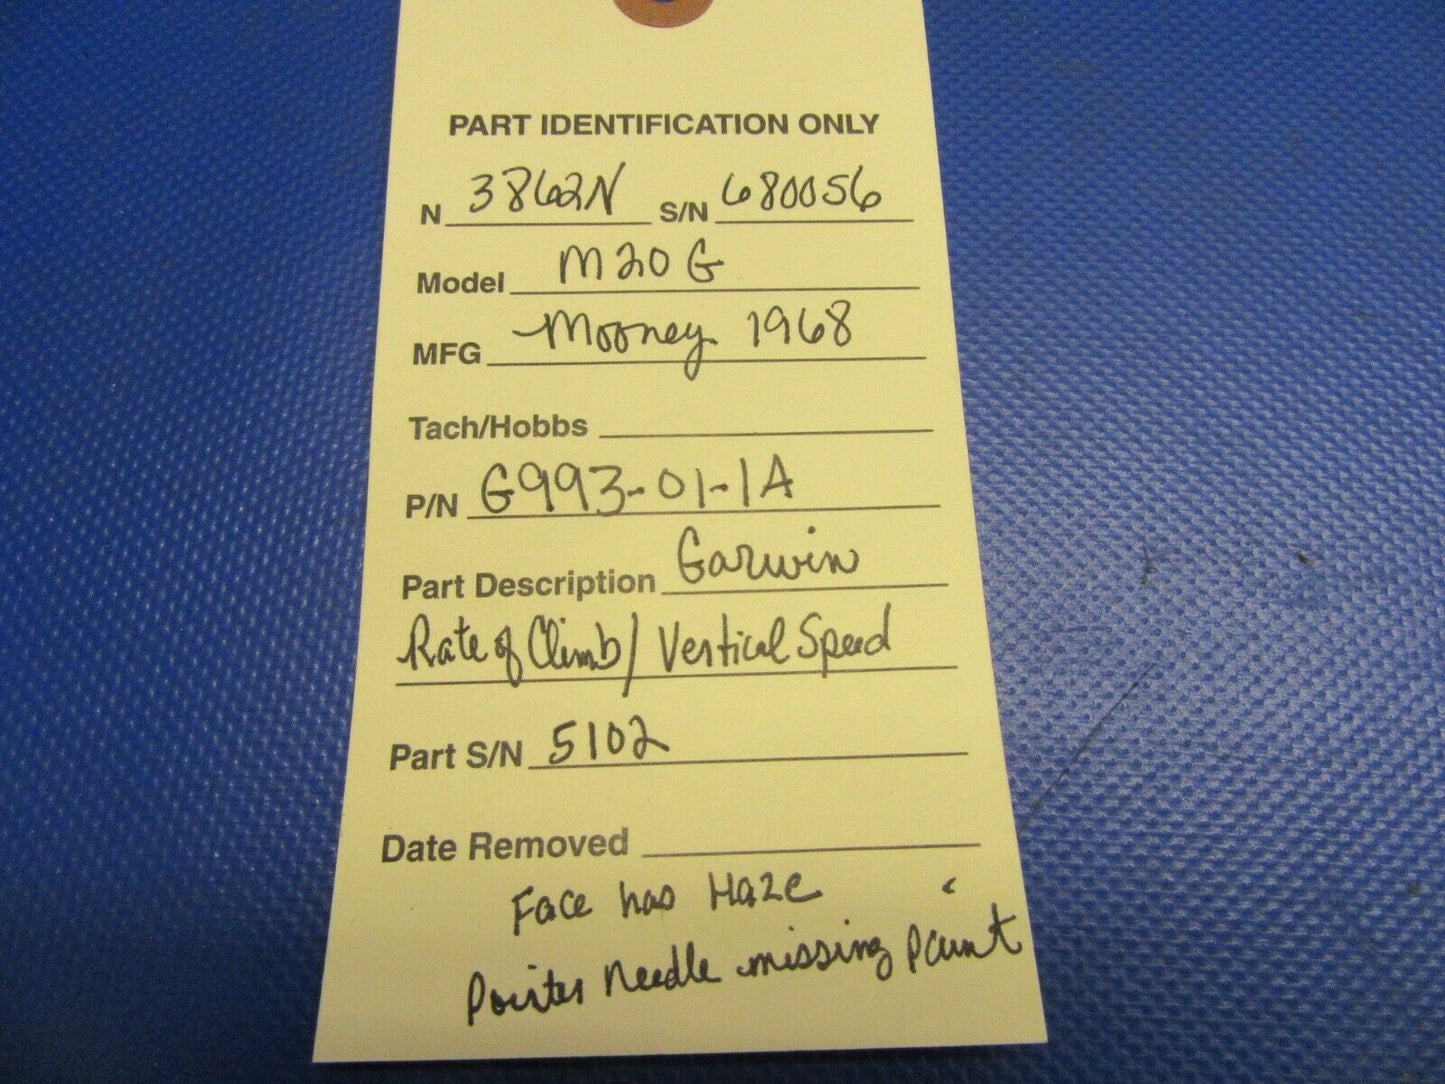 PART IDENTIFICATION ONLY
N 3862N S/N 680056
Model M20G
MFG Mooney 1968
Tach/Hobbs
P/N G993-01-1A
Part Description Garwin
Rate of Climb/Vertical Speed
Part S/N 5102
Date Removed
Face has Haze
Pointer Needle missing paint